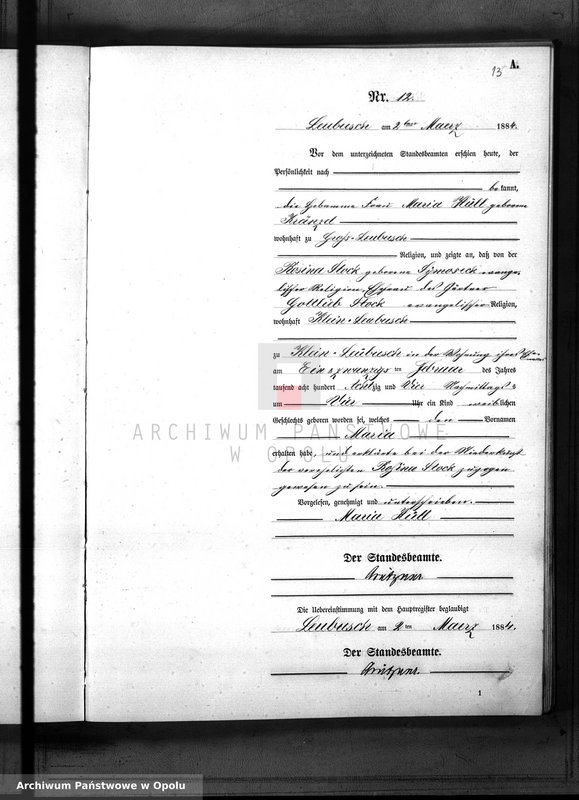 13 A.
Nr. 12.
Leubusch am 2ten Maerz 1884.
Vor dem unterzeichneten Standesbeamten erschien heute, der
Persönlichkeit nach
bekannt,
die Hebamme Frau Maria Hüll geborene
wohnhaft zu Groß-Leubusch
Religion, und zeigte an, daß von der
Rosina Stock geborene evange-
lischer Religion, Ehefrau des Gärtner
Gottlieb Stock evangelischer Religion,
wohnhaft Klein-Leubusch
zu Klein-Leubusch in der Wohnung ihres Ehe-
mannes
am Ein zwanzigs ten Februar des Jahres
tausend acht hundert Achtzig und Vier Nachmittags
um Vier Uhr ein Kind weiblichen
Geschlechts geboren worden sei, welches den Vornamen
Maria
erhalten habe, und erklärte bei der Niederkunft
der verehelichten Rosina Stock zugegen
gewesen zu sein.
Vorgelesen, genehmigt und unterschrieben.
Maria Hüll
Der Standesbeamte.
Die Uebereinstimmung mit dem Hauptregister beglaubigt
Leubusch am 2ten Maerz 1884.
Der Standesbeamte.
1
ARCHIWUM PAŃSTWOWE
W OPOLU
Archiwum Państwowe w Opolu